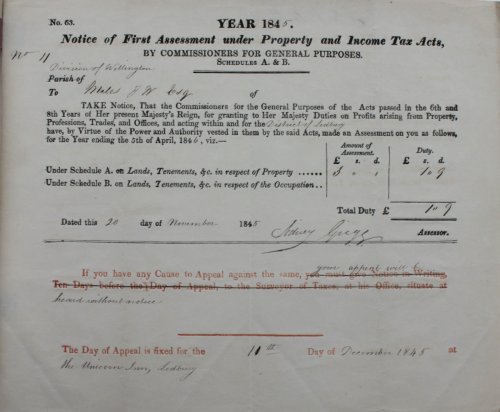 No. 63.
YEAR 1845.
Notice of First Assessment under Property and Income Tax Acts,
BY COMMISSIONERS FOR GENERAL PURPOSES.
SCHEDULES A. & B.
No 11
Division of Wellington
Parish of
To Miles J W Esq of
TAKE Notice, That the Commissioners for the General Purposes of the Acts passed in the 6th and
8th Years of Her present Majesty's Reign, for granting to Her Majesty Duties on Profits arising from Property,
Professions, Trades, and Offices, and acting within and for the District of Ledbury
have, by Virtue of the Power and Authority vested in them by the said Acts, made an Assessment on you as follows,
for the Year ending the 5th of April, 1846, viz.—
Amount of Assessment. Duty.
£ s. d. £ s. d.
Under Schedule A. on Lands, Tenements, &c. in respect of Property 3 " " 1 9
Under Schedule B. on Lands, Tenements, &c. in respect of the Occupation
Total Duty £ 1 9
Dated this 20 day of November 1845
Sidney Gregg Assessor.
your appeal will be
If you have any Cause to Appeal against the same, you must give Notice in Writing,
Ten Days before the Day of Appeal, to the Surveyor of Taxes, at his Office, situate at
heard without notice
The Day of Appeal is fixed for the 11th Day of December 1845 at
the Unicorn Inn, Ledbury